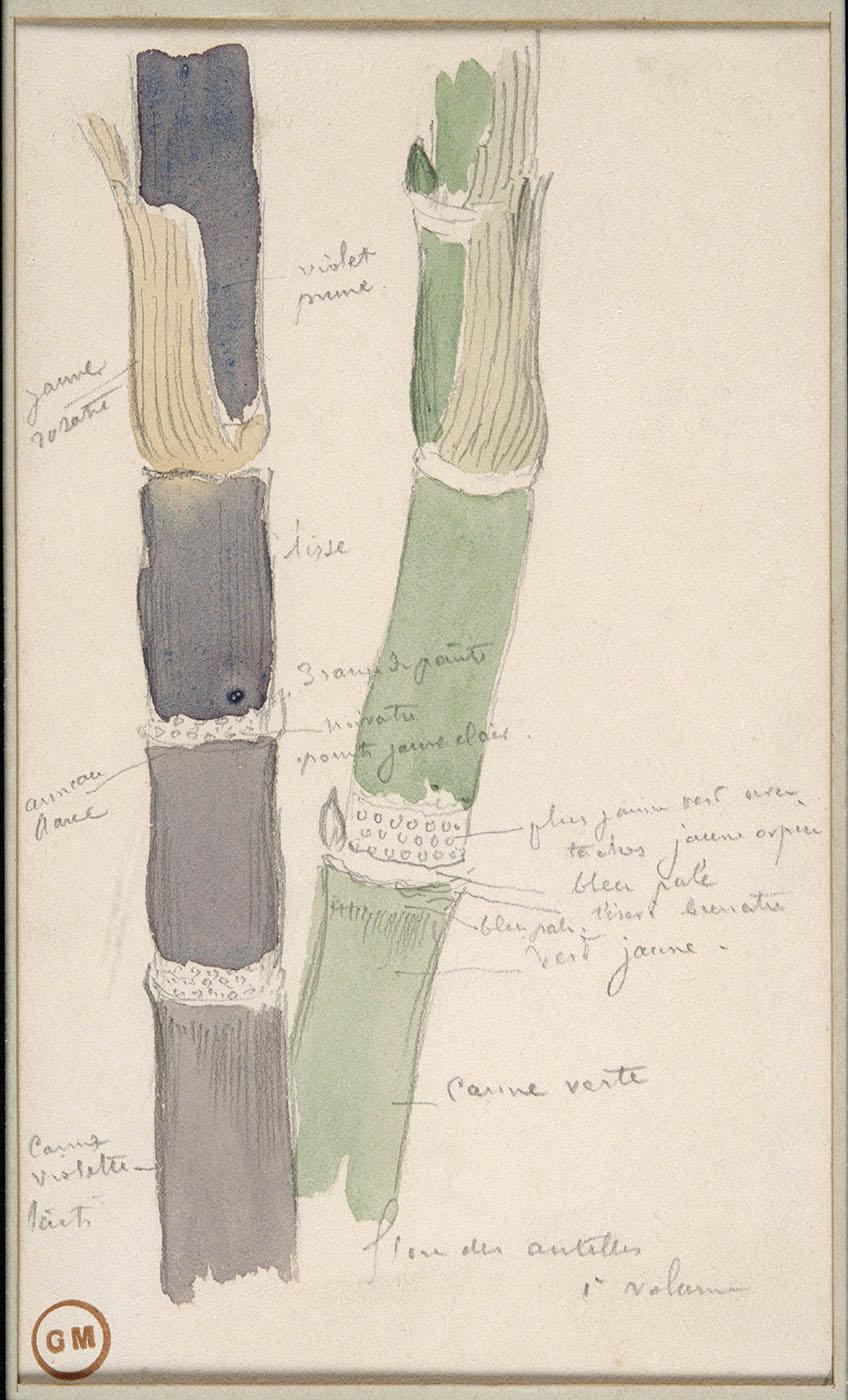 violet
prune.
jaune
rosatre
lisse
3 rangs de points
noiratre
points jaune clair.
anneau
plus jaune vert avec
taches jaune orpin
bleu pale
bleu pale.
vert jaune.
Canne verte
Canne
violette
flore des antilles
1r volume
GM